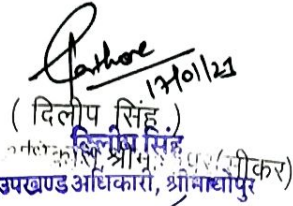 Rathore
17/01/23
( दिलीप सिंह )
दिलीप सिंह
(सीकर)
उपखण्ड अधिकारी, श्रीमाधोपुर